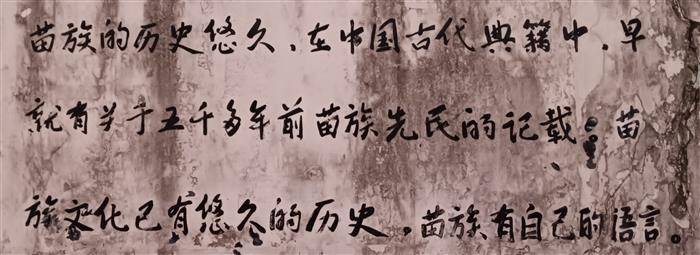 苗族的历史悠久、在中国古代典籍中,早
就有关于五千多年前苗族先民的记载。苗
族文化已有悠久的历史,苗族有自己的语言。